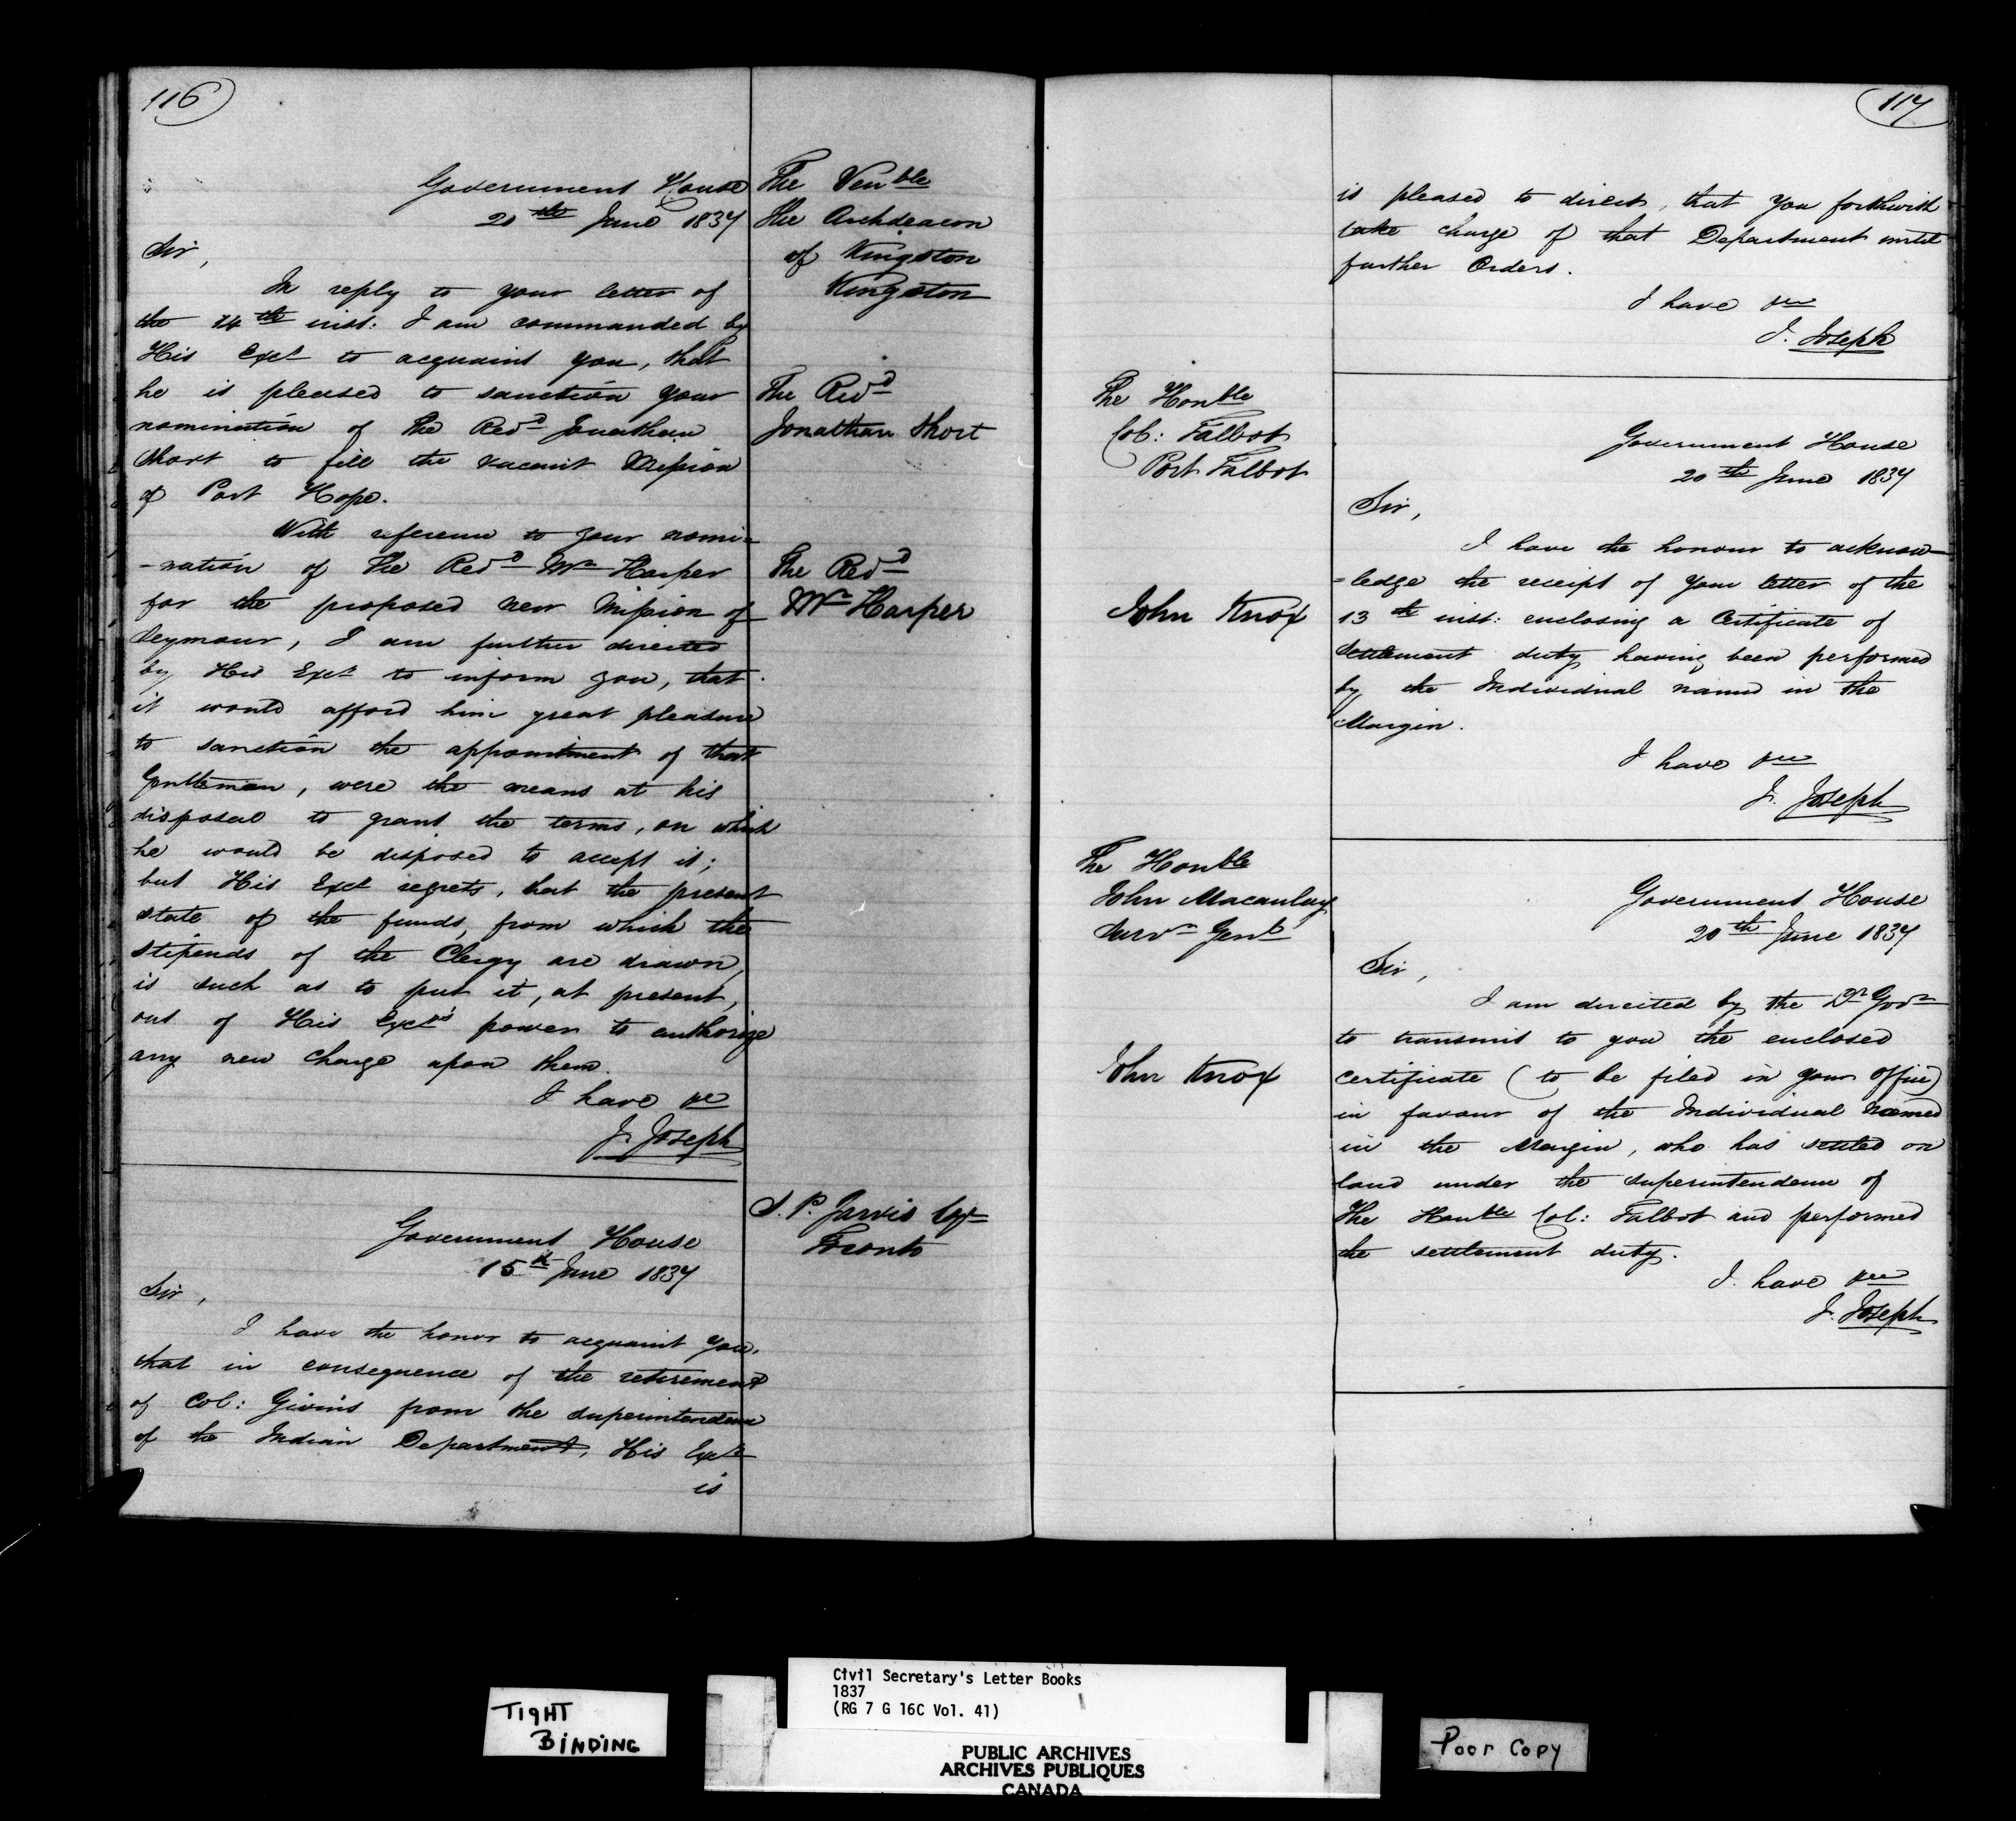 116
Government House
20th June 1837
Sir,
In reply to your letter of
the 14th inst: I am commanded by
His Excy to acquaint you, that
he is pleased to sanction your
nomination of The Revd Jonathan
Short to fill the vacant Mission
of Port Hope.
With reference to your nomi=
-nation of The Revd Mr Harper
for the proposed new Mission of
Seymour, I am further directed
by His Excy to inform you, that
it would afford him great pleasure
to sanction the appointment of that
Gentleman, were the means at his
disposal to grant the terms, on which
he would be disposed to accept it;
but His Excy regrets, that the present
state of the funds, from which the
stipends of the Clergy are drawn,
is such as to put it, at present,
out of His Excy's power to authorize
any new charge upon them.
I have &c
J. Joseph
The Venble
The Archdeacon
of Kingston
Kingston
The Revd
Jonathan Short
The Revd
Mr Harper
Government House
15th June 1837
Sir,
I have the honor to acquaint you,
that in consequence of the retirement
of Col: Givins from the superintendence
of the Indian Department, His Excy
is
S. P. Jarvis Esqr
Toronto
117
is pleased to direct, that you forthwith
take charge of that Department until
further Orders.
I have &c
J. Joseph
The Honble
Col: Talbot
Port Talbot
John Knox
Government House
20th June 1837
Sir,
I have the honour to acknow-
=ledge the receipt of your letter of the
13th inst: enclosing a Certificate of
Settlement duty having been performed
by the Individual named in the
Margin.
I have &c
J. Joseph
The Honble
John Macaulay
Survr Genl
John Knox
Government House
20th June 1837
Sir,
I am directed by the Lt Govr
to transmit to you the enclosed
certificate (to be filed in your office)
in favour of the Individual named
in the Margin, who has settled on
land under the superintendence of
The Honble Col: Talbot and performed
the settlement duty.
I have &c
J. Joseph
TIGHT
BINDING
Civil Secretary's Letter Books
1837
(RG 7 G 16C Vol. 41)
PUBLIC ARCHIVES
ARCHIVES PUBLIQUES
CANADA
Poor Copy